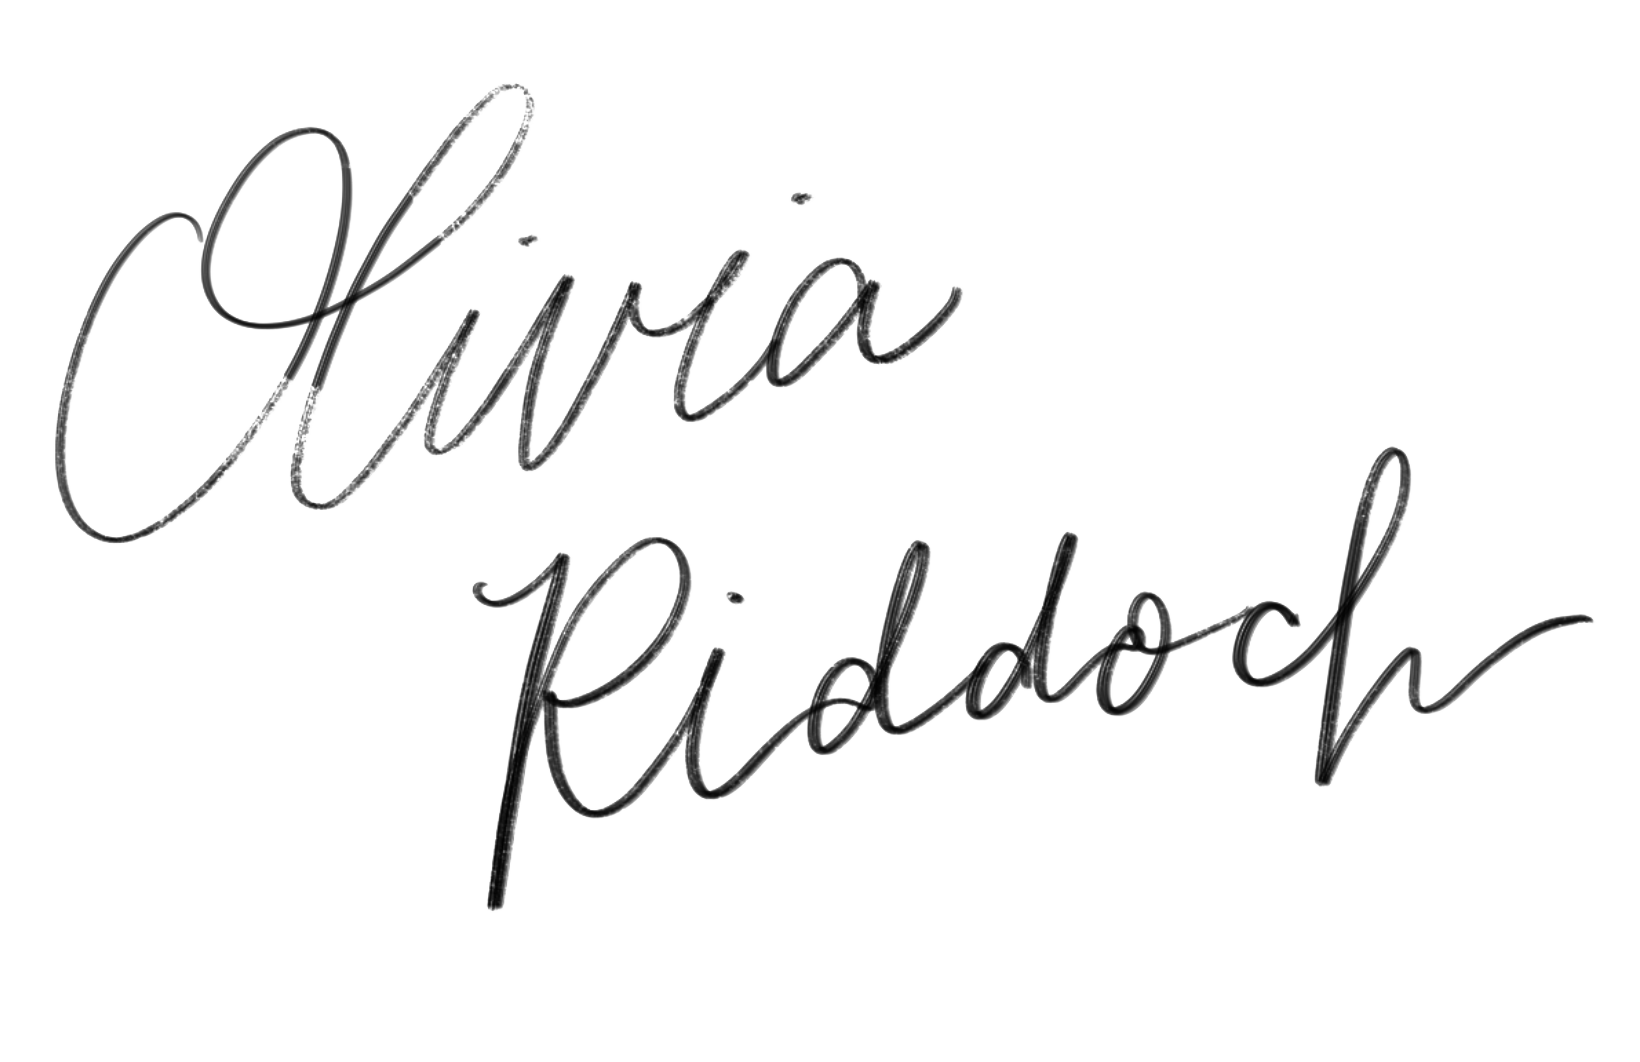 Olivia
Riddoch